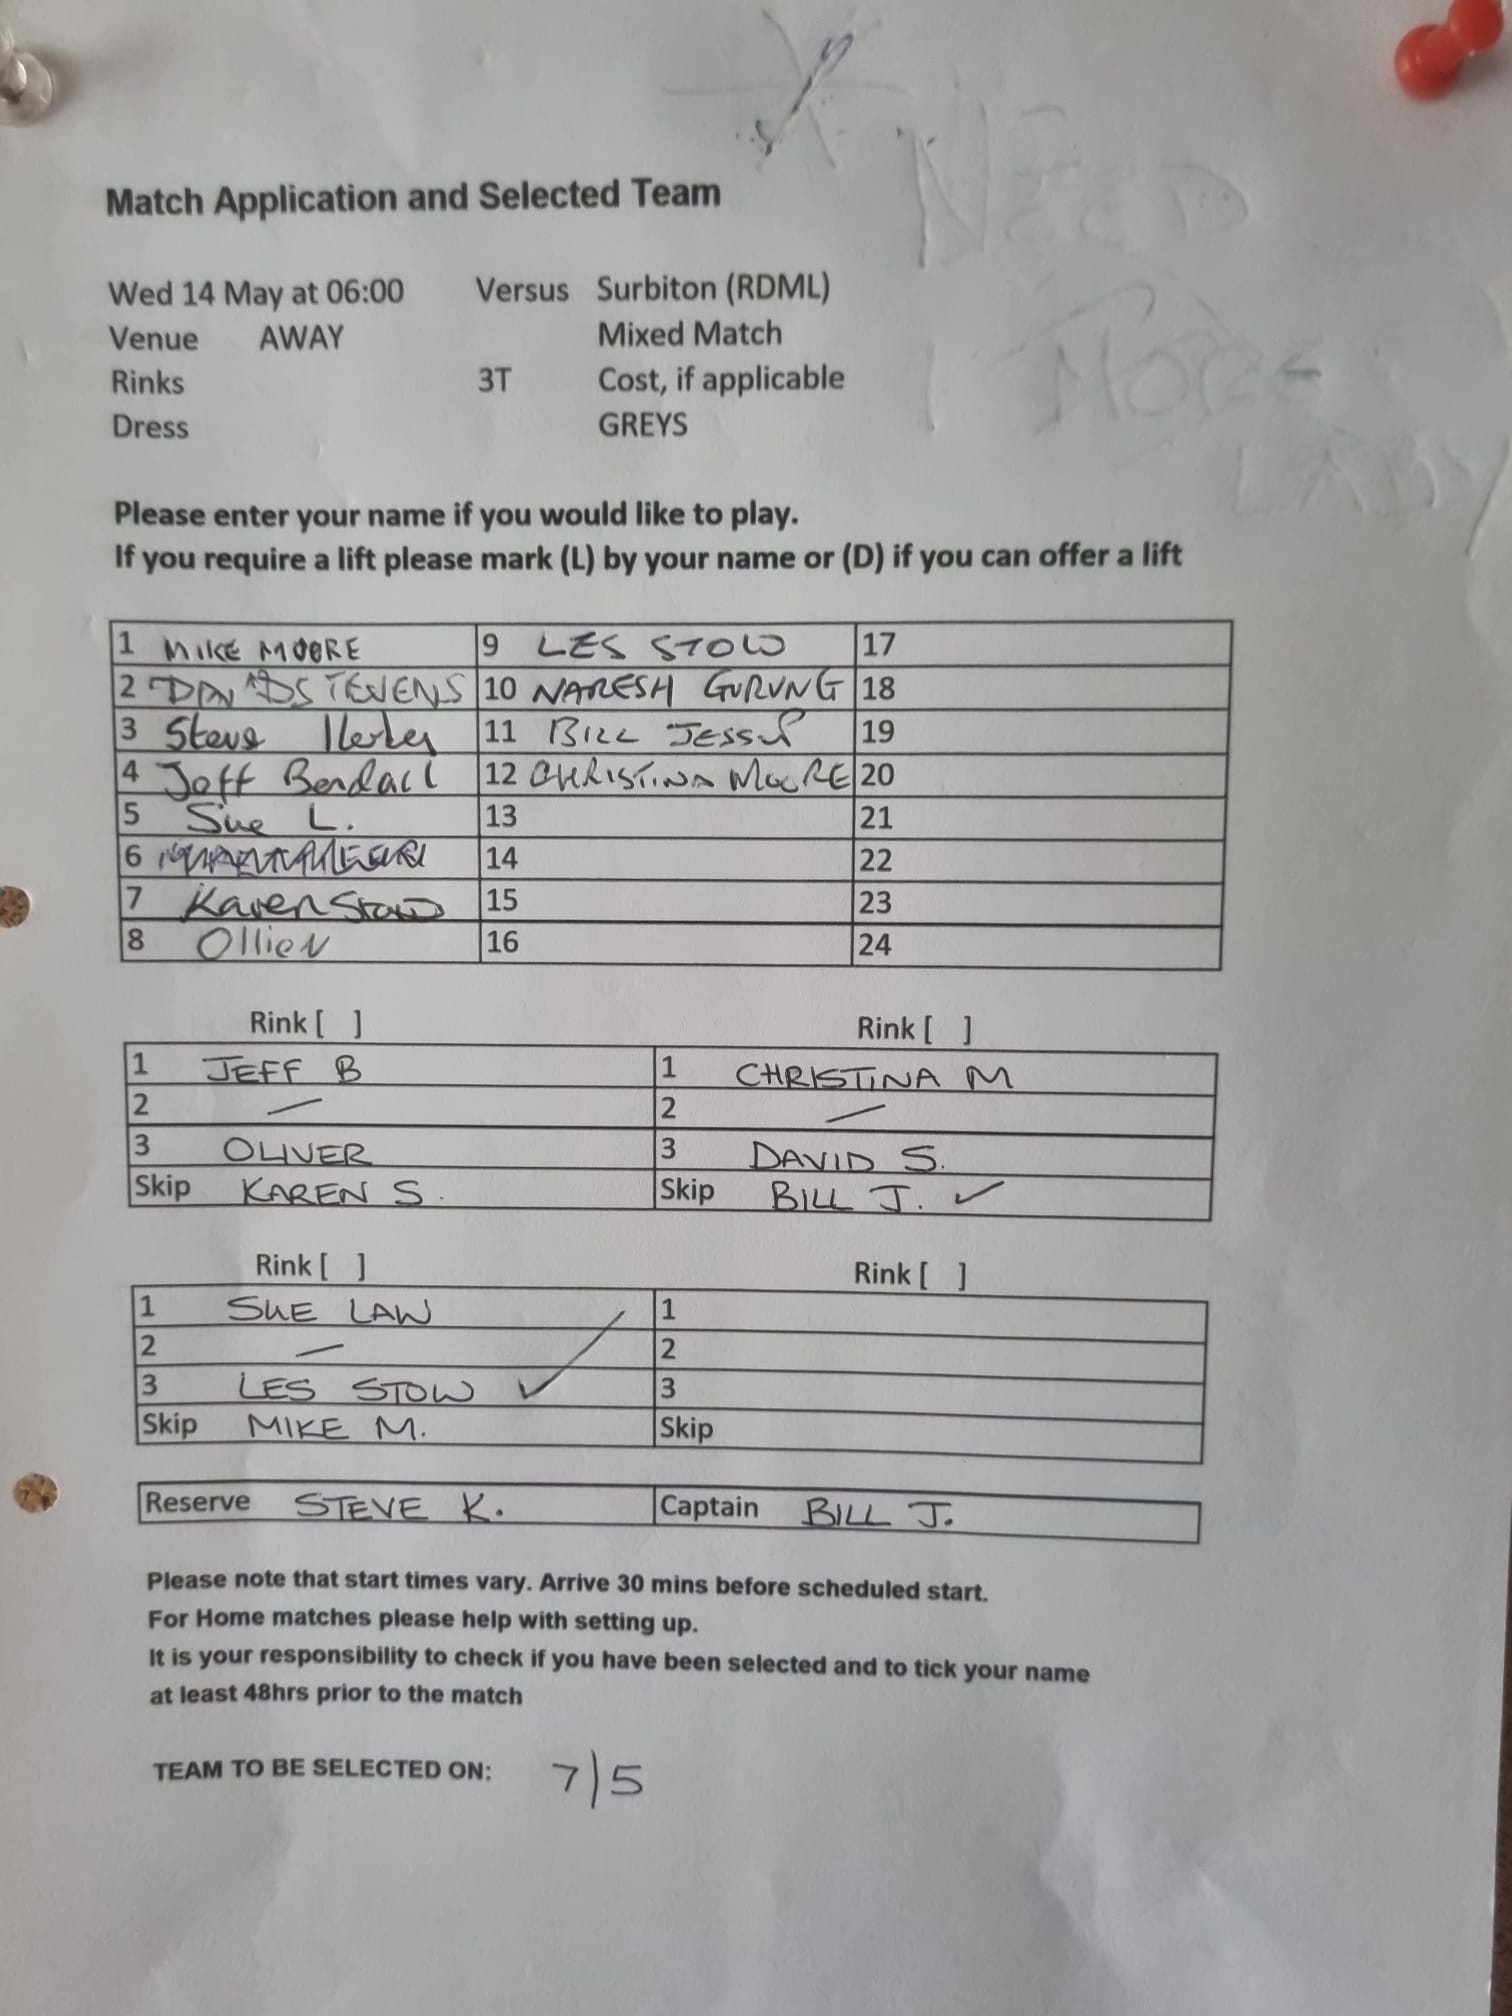 NEED
1 MORE
LADY
Match Application and Selected Team
Wed 14 May at 06:00 Versus Surbiton (RDML)
Venue AWAY Mixed Match
Rinks 3T Cost, if applicable
Dress GREYS
Please enter your name if you would like to play.
If you require a lift please mark (L) by your name or (D) if you can offer a lift
1 MIKE MOORE 9 LES STOW 17
2 DAVID STEVENS 10 NARESH GURUNG 18
3 Steve 11 BILL JESSUP 19
4 Jeff Bendall 12 CHRISTINA MOORE 20
5 Sue L. 13 21
6 14 22
7 Karen Stow 15 23
8 Ollie N 16 24
Rink [ ] Rink [ ]
1 JEFF B 1 CHRISTINA M
2 — 2 —
3 OLIVER 3 DAVID S.
Skip KAREN S. Skip BILL J. ✓
Rink [ ] Rink [ ]
1 SUE LAW 1
2 — 2
3 LES STOW ✓ 3
Skip MIKE M. Skip
Reserve STEVE K. Captain BILL J.
Please note that start times vary. Arrive 30 mins before scheduled start.
For Home matches please help with setting up.
It is your responsibility to check if you have been selected and to tick your name
at least 48hrs prior to the match
TEAM TO BE SELECTED ON: 7/5